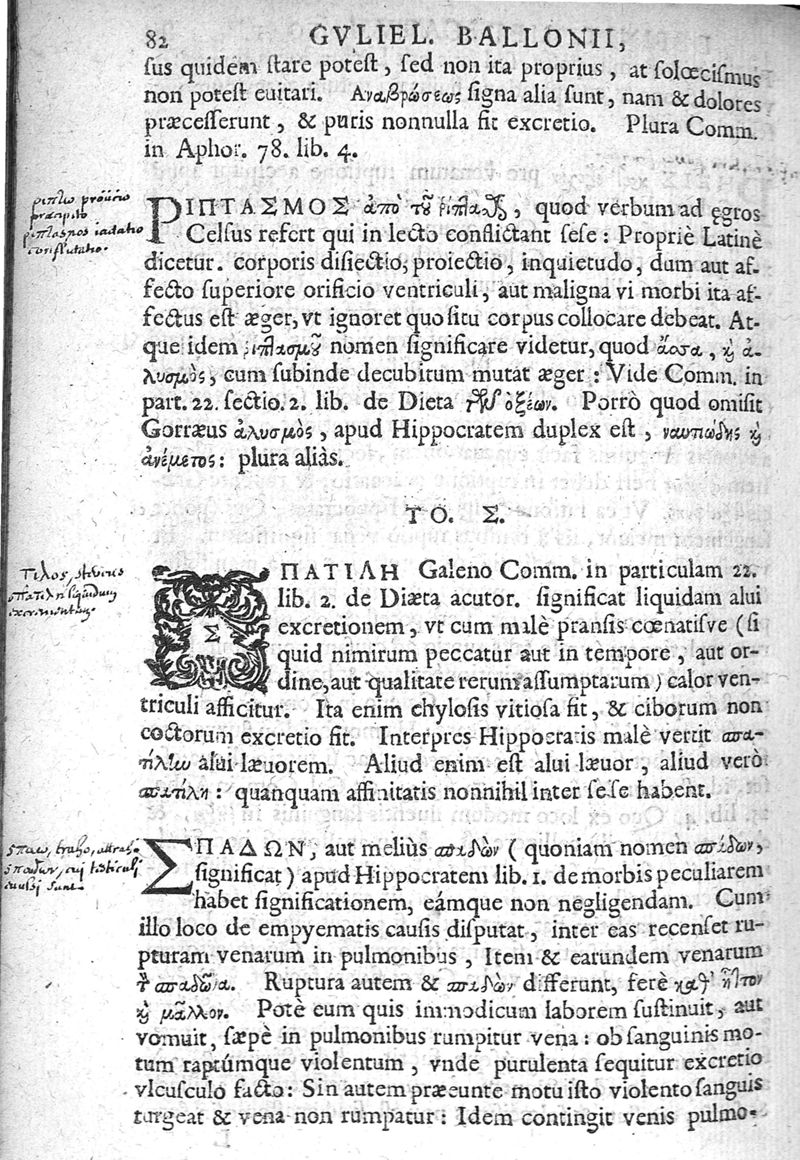 82 GVLIEL. BALLONII,
sus quidem stare potest, sed non ita proprius, at solœcismus
non potest euitari. Αναβρώσεως signa alia sunt, nam & dolores
præcesserunt, & puris nonnulla fit excretio. Plura Comm.
in Aphor. 78. lib. 4.
ριπτω proiicio
præcipito
ριπτασμος iactatio
conflictatio.
ΡΙΠΤΑΣΜΟΣ ἀπὸ τοῦ ῥιπτάζειν, quod verbum ad ęgros
Celsus refert qui in lecto conflictant sese: Propriè Latinè
dicetur. corporis disiectio, proiectio, inquietudo, dum aut af-
fecto superiore orificio ventriculi, aut maligna vi morbi ita af-
fectus est æger, vt ignoret quo situ corpus collocare debeat. At-
que idem ῥιπτασμοῦ nomen significare videtur, quod ἄσσα, καὶ ἀ-
λυσμὸς, cum subinde decubitum mutat æger: Vide Comm. in
part. 22. sectio. 2. lib. de Dieta τῶν ὀξέων. Porrò quod omisit
Gorræus ἀλυσμὸς, apud Hippocratem duplex est, ναυτιώδης καὶ
ἀνέμετος: plura aliàs.
ΤΟ. Σ.
Τιλος, stercus
σπατιλη liquidum
excrementum.
ΣΠΑΤΙΛΗ Galeno Comm. in particulam 22.
lib. 2. de Diæta acutor. significat liquidam alui
excretionem, vt cum malè pransis cœnatisve (si
quid nimirum peccatur aut in tempore, aut or-
dine, aut qualitate rerum assumptarum) calor ven-
triculi afficitur. Ita enim chylosis vitiosa fit, & ciborum non
coctorum excretio fit. Interpres Hippocratis malè vertit σπα-
τίλην alui læuorem. Aliud enim est alui læuor, aliud verò
σπατίλη: quanquam affinitatis nonnihil inter sese habent.
σπαω, traho,
σπαδων, cui testiculi
euulsi sunt.
ΣΠΑΔΩΝ, aut meliùs σπιδὼν (quoniam nomen σπίδων,
significat) apud Hippocratem lib. 1. de morbis peculiarem
habet significationem, eámque non negligendam. Cum
illo loco de empyematis causis disputat, inter eas recenset ru-
pturam venarum in pulmonibus, Item & earundem venarum
τὸ σπαδῶνα. Ruptura autem & σπιδὼν differunt, ferè καθ’ ἧττον
καὶ μᾶλλον. Potè cum quis immodicum laborem sustinuit, aut
vomuit, sæpè in pulmonibus rumpitur vena: ob sanguinis mo-
tum raptúmque violentum, vnde purulenta sequitur excretio
vlcusculo facto: Sin autem præeunte motu isto violento sanguis
turgeat & vena non rumpatur: Idem contingit venis pulmo-